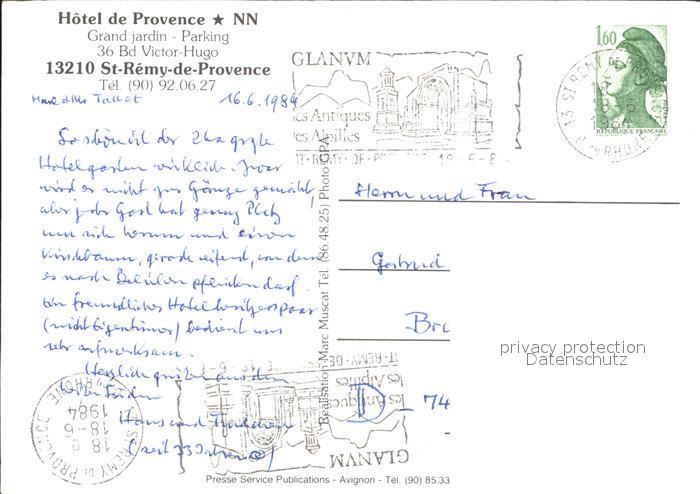 Hôtel de Provence ★ NN
Grand jardin - Parking
36 Bd Victor-Hugo
13210 St-Rémy-de-Provence
Tél. (90) 92.06.27
16.6.1984
So schön ist der 2 ha große
Hotelgarten wirklich. Zwar
wird er nicht zur Gänze gemäht,
aber jeder Gast hat genug Platz
um sich herum und einen
Kirschbaum, gerade reifend, von dem
er nach Belieben pflücken darf.
Ein freundliches Hotelbesitzerspaar
(nicht Eigentümer) bedient uns
sehr aufmerksam.
Herzlich grüßen aus dem
Süden
Hans und
(seit 33 Jahren
GLANVM
les Antiques
les Alpilles
ST-REMY-DE-PROVENCE
1,60
REPUBLIQUE FRANÇAISE
13 ST-REMY DE PROVENCE
18-6
1984
B. DU RHONE
Herrn und Frau
Gertrud
D - 74
privacy protection
Datenschutz
Réalisation Marc Muscat Tél. (86 48 25) Photo GPA
ST-REMY-DE-
les Alpilles
les Antiques
GLANVM
13 ST-REMY DE PROVENCE
18-6
1984
B. DU RHONE
Presse Service Publications - Avignon - Tél. (90) 85.33